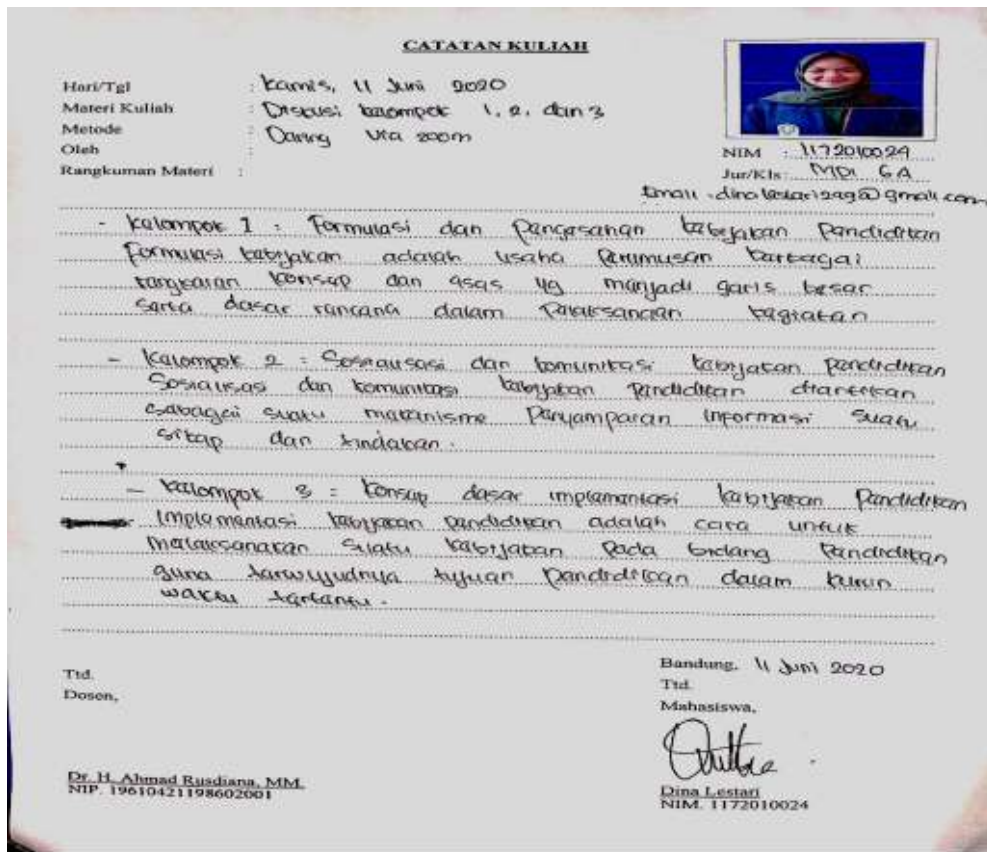 CATATAN KULIAH
Hari/Tgl : Kamis, 11 Juni 2020
Materi Kuliah : Diskusi kelompok 1, 2, dan 3
Metode : Daring via zoom
Oleh :
Rangkuman Materi :
NIM : 1172010024
Jur/Kls : MPI 6A
Email : dinalestari2a9@gmail.com
- Kelompok 1 : Formulasi dan Pengesahan kebijakan Pendidikan
Formulasi kebijakan adalah usaha Perumusan berbagai
rangkaian konsep dan asas yg menjadi garis besar
serta dasar rencana dalam Pelaksanaan kegiatan
- Kelompok 2 : Sosialisasi dan komunikasi kebijakan Pendidikan
Sosialisasi dan komunikasi kebijakan Pendidikan diartikan
sebagai suatu mekanisme Penyampaian informasi suatu
sikap dan tindakan.
- Kelompok 3 : Konsep dasar implementasi kebijakan Pendidikan
Implementasi kebijakan pendidikan adalah cara untuk
melaksanakan suatu kebijakan Pada bidang Pendidikan
guna terwujudnya tujuan Pendidikan dalam kurun
waktu tertentu.
Bandung, 11 Juni 2020
Ttd. Ttd.
Dosen, Mahasiswa,
Dr. H. Ahmad Rusdiana, MM. Dina Lestari
NIP. 19610421198602001 NIM. 1172010024